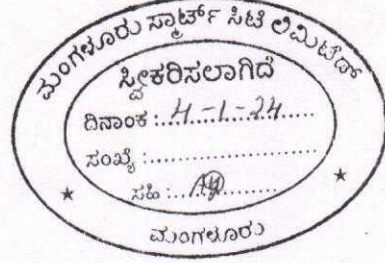 ಮಂಗಳೂರು ಸ್ಮಾರ್ಟ್ ಸಿಟಿ ಲಿಮಿಟೆಡ್
ಸ್ವೀಕರಿಸಲಾಗಿದೆ
ದಿನಾಂಕ : 4-1-24
ಸಂಖ್ಯೆ :
ಸಹಿ :
ಮಂಗಳೂರು